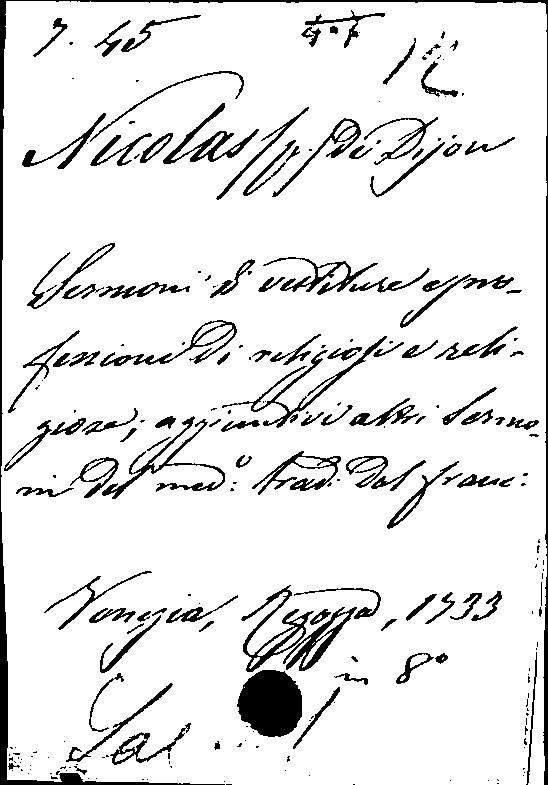 7. 45
12
Nicolas (p.) de Dijon
Sermoni di vestiture e pro-
fessioni di religiosi e reli-
giose; aggiuntivi altri Sermo-
ni del med.º trad. dal franc:
Venezia, 1733
in 8º